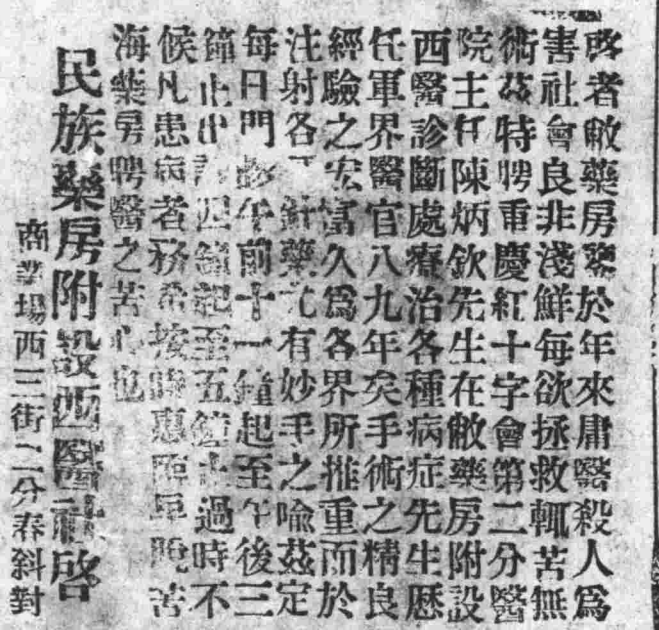 啓者敝藥房鑒於年來庸醫殺人爲
害社會良非淺鮮每欲拯救輒苦無
術茲特聘重慶紅十字會第二分醫
院主任陳炳欽先生在敝藥房附設
西醫診斷處療治各種病症先生歷
任軍界醫官八九年矣手術之精良
經驗之宏富久爲各界所推重而於
注射各 針藥尤有妙手之喻茲定
每日門診午前十一鐘起至午後三
鐘止出診四鐘起至五鐘止過時不
候凡患病者務希按時惠臨 苦
海藥房聘醫之苦心也
民族藥房附設西醫 啓
商業場西三街二分春斜對